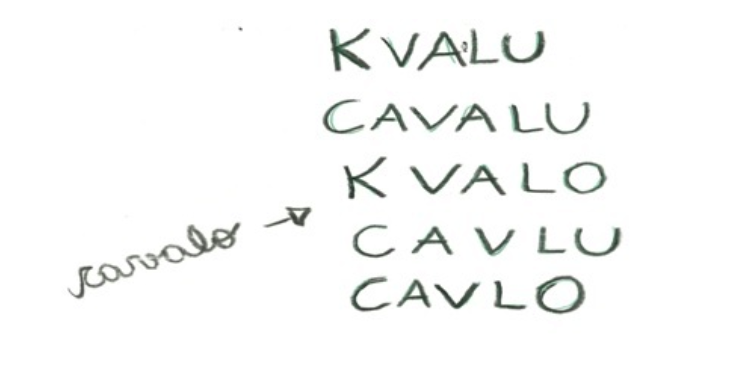 KVALU
CAVALU
KVALO
cavalo →
CAVLU
CAVLO